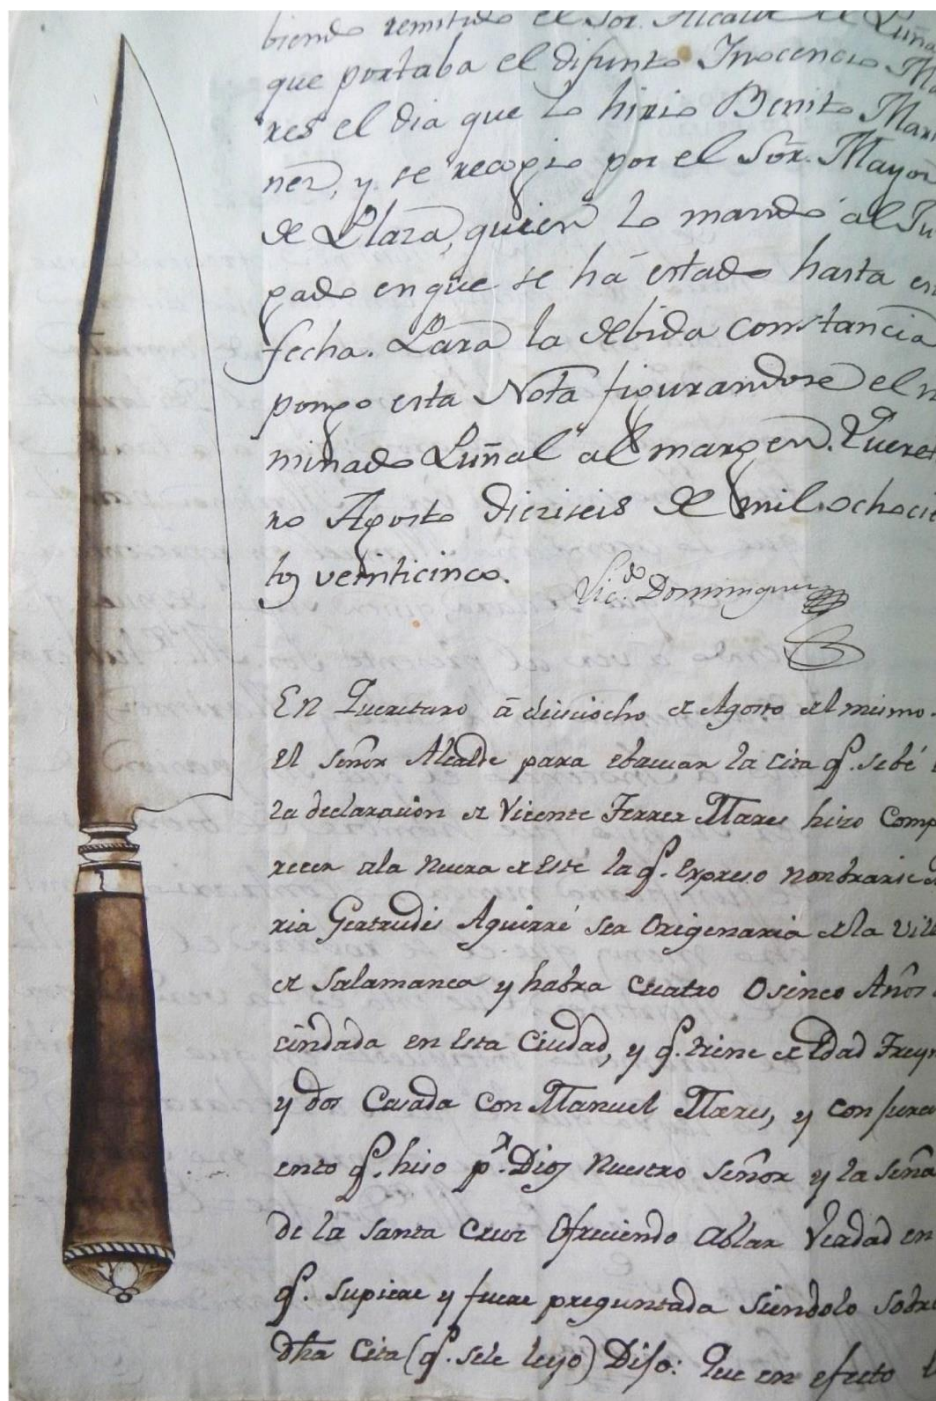 biendo remitido el Sor. Alcalde el Puña
que portaba el difunto Inocencio Ma
res el dia que lo hirio Benito Mari
nez, y se recogio por el Sör. Mayor
de Plaza, quien lo mandó al Ju
gado en que se há estado hasta es
fecha. Para la debida constancia
pongo esta Nota figurandose el n
minado Puñal al margen. Quereta
ro Agosto dieziseis de mil ochocie
tos veinticinco.
Vic.do Dominguez
En Queretaro â diesiocho de Agosto del mismo
el señor Alcalde para ebacuar la cita q.e sebé
la declarasion de Vicente Ferrer Mares hizo Comp
recer ala Nuera de Esté la q.e Expreso Nonbrarse
ria Gertrudis Aguirré ser Origenaria dela Vill
de Salamanca y habra Cuatro Osinco Años
cindada en Esta Ciudad, y q.e tiene de Edad Treyn
y dos Casada Con Manuel Mares, y con jura
ento q.e hiso p.r Dios Nuestro Señor y la Seña
de la Santa Cruz Ofreciendo Ablar Verdad en
q.e Supiere y fuere preguntada Siendolo Sobre
dha Cita (q.e sele leyo) Dijo: Que en efecto l